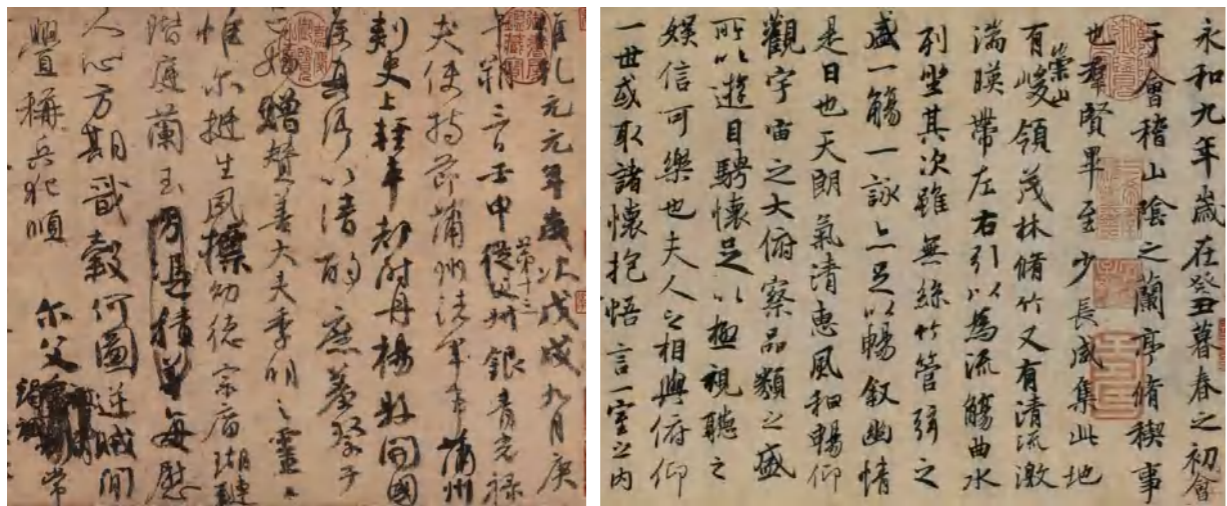 維乾元元年歲次戊戌九月庚
午朔三日壬申第十三從父銀青光祿
夫使持節蒲州諸軍事蒲州
刺史上輕車都尉丹楊縣開國
侯真卿以清酌庶羞祭于
亡姪贈贊善大夫季明之靈曰
惟尔挺生夙標幼德宗廟瑚璉
階庭蘭玉方憑積善每慰
人心方期戩穀何圖逆賊間
釁稱兵犯順尔父常
永和九年歲在癸丑暮春之初會
于會稽山陰之蘭亭脩稧事
也羣賢畢至少長咸集此地
有崇山峻領茂林脩竹又有清流激
湍暎帶左右引以為流觴曲水
列坐其次雖無絲竹管弦之
盛一觴一詠亦足以暢叙幽情
是日也天朗氣清惠風和暢仰
觀宇宙之大俯察品類之盛
所以遊目騁懷足以極視聽之
娛信可樂也夫人之相與俯仰
一世或取諸懷抱悟言一室之內